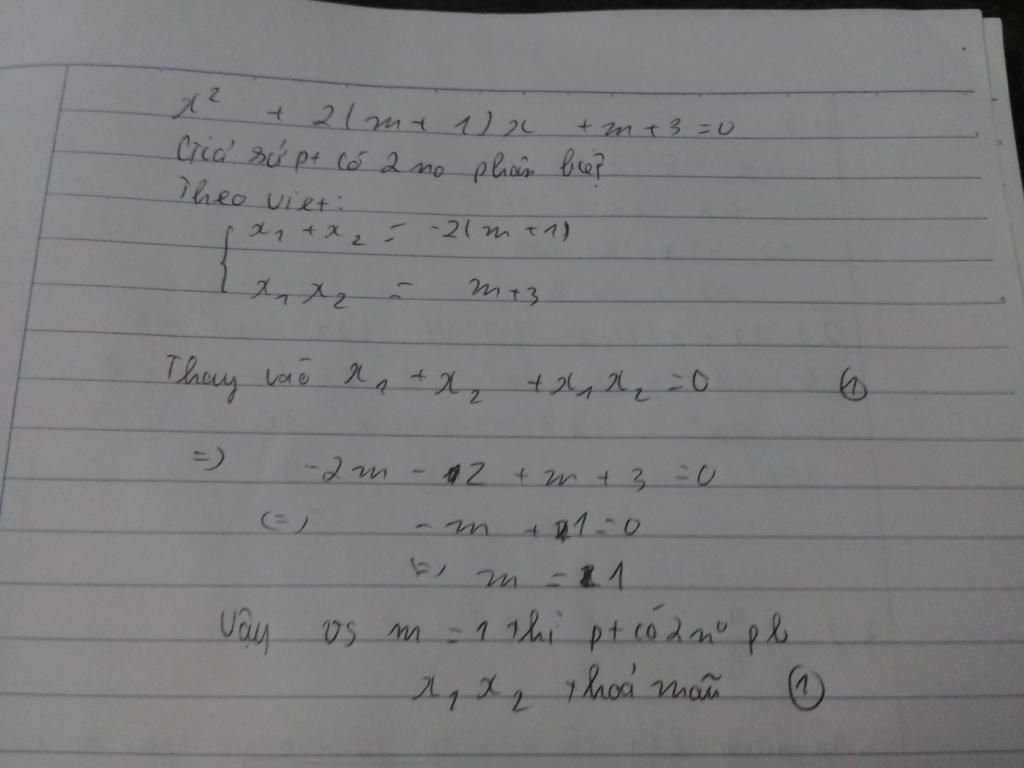 x² + 2(m+1)x + m + 3 = 0
Giả sử pt có 2 no phân biệt
Theo viet:
x₁ + x₂ = -2(m+1)
x₁ x₂ = m+3
Thay vào x₁ + x₂ + x₁ x₂ = 0 ①
=) -2m - 2 + m + 3 = 0
(=) -m + 1 = 0
(=) m = 1
Vậy vs m = 1 thì pt có 2 no pb
x₁ x₂ thoả mãn ①